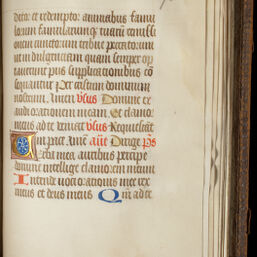 ditor et redemptor: animabus famu
lorum famularumque tuarum remissi
onem cunctorum tribue peccatorum
ut indulgentiam quam semper op
taverunt piis supplicationibus co
sequantur Per cristum dominum
nostrum. Amen v̄sus Domine ex
audi orationem meam. Et clamor
meus ad te veniat v̄sus Requiescāt
in pace. amē añe Dirige p̄s
Verba mea auribus percipe
domine intellige clamorem meum
Intende voci orationis mee rex
meus et deus meus Qm̄ ad te